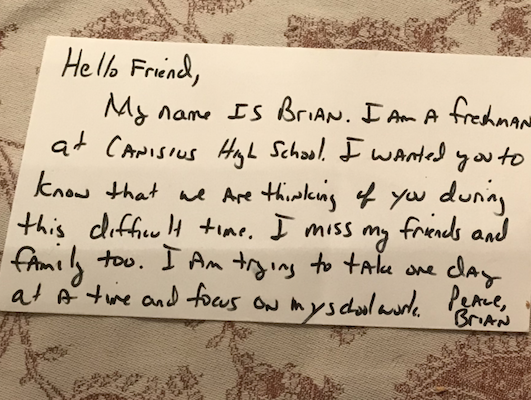 Hello Friend,
My name is Brian. I am a freshman
at Canisius High School. I wanted you to
know that we are thinking of you during
this difficult time. I miss my friends and
family too. I am trying to take one day
at a time and focus on my schoolwork. Peace,
Brian